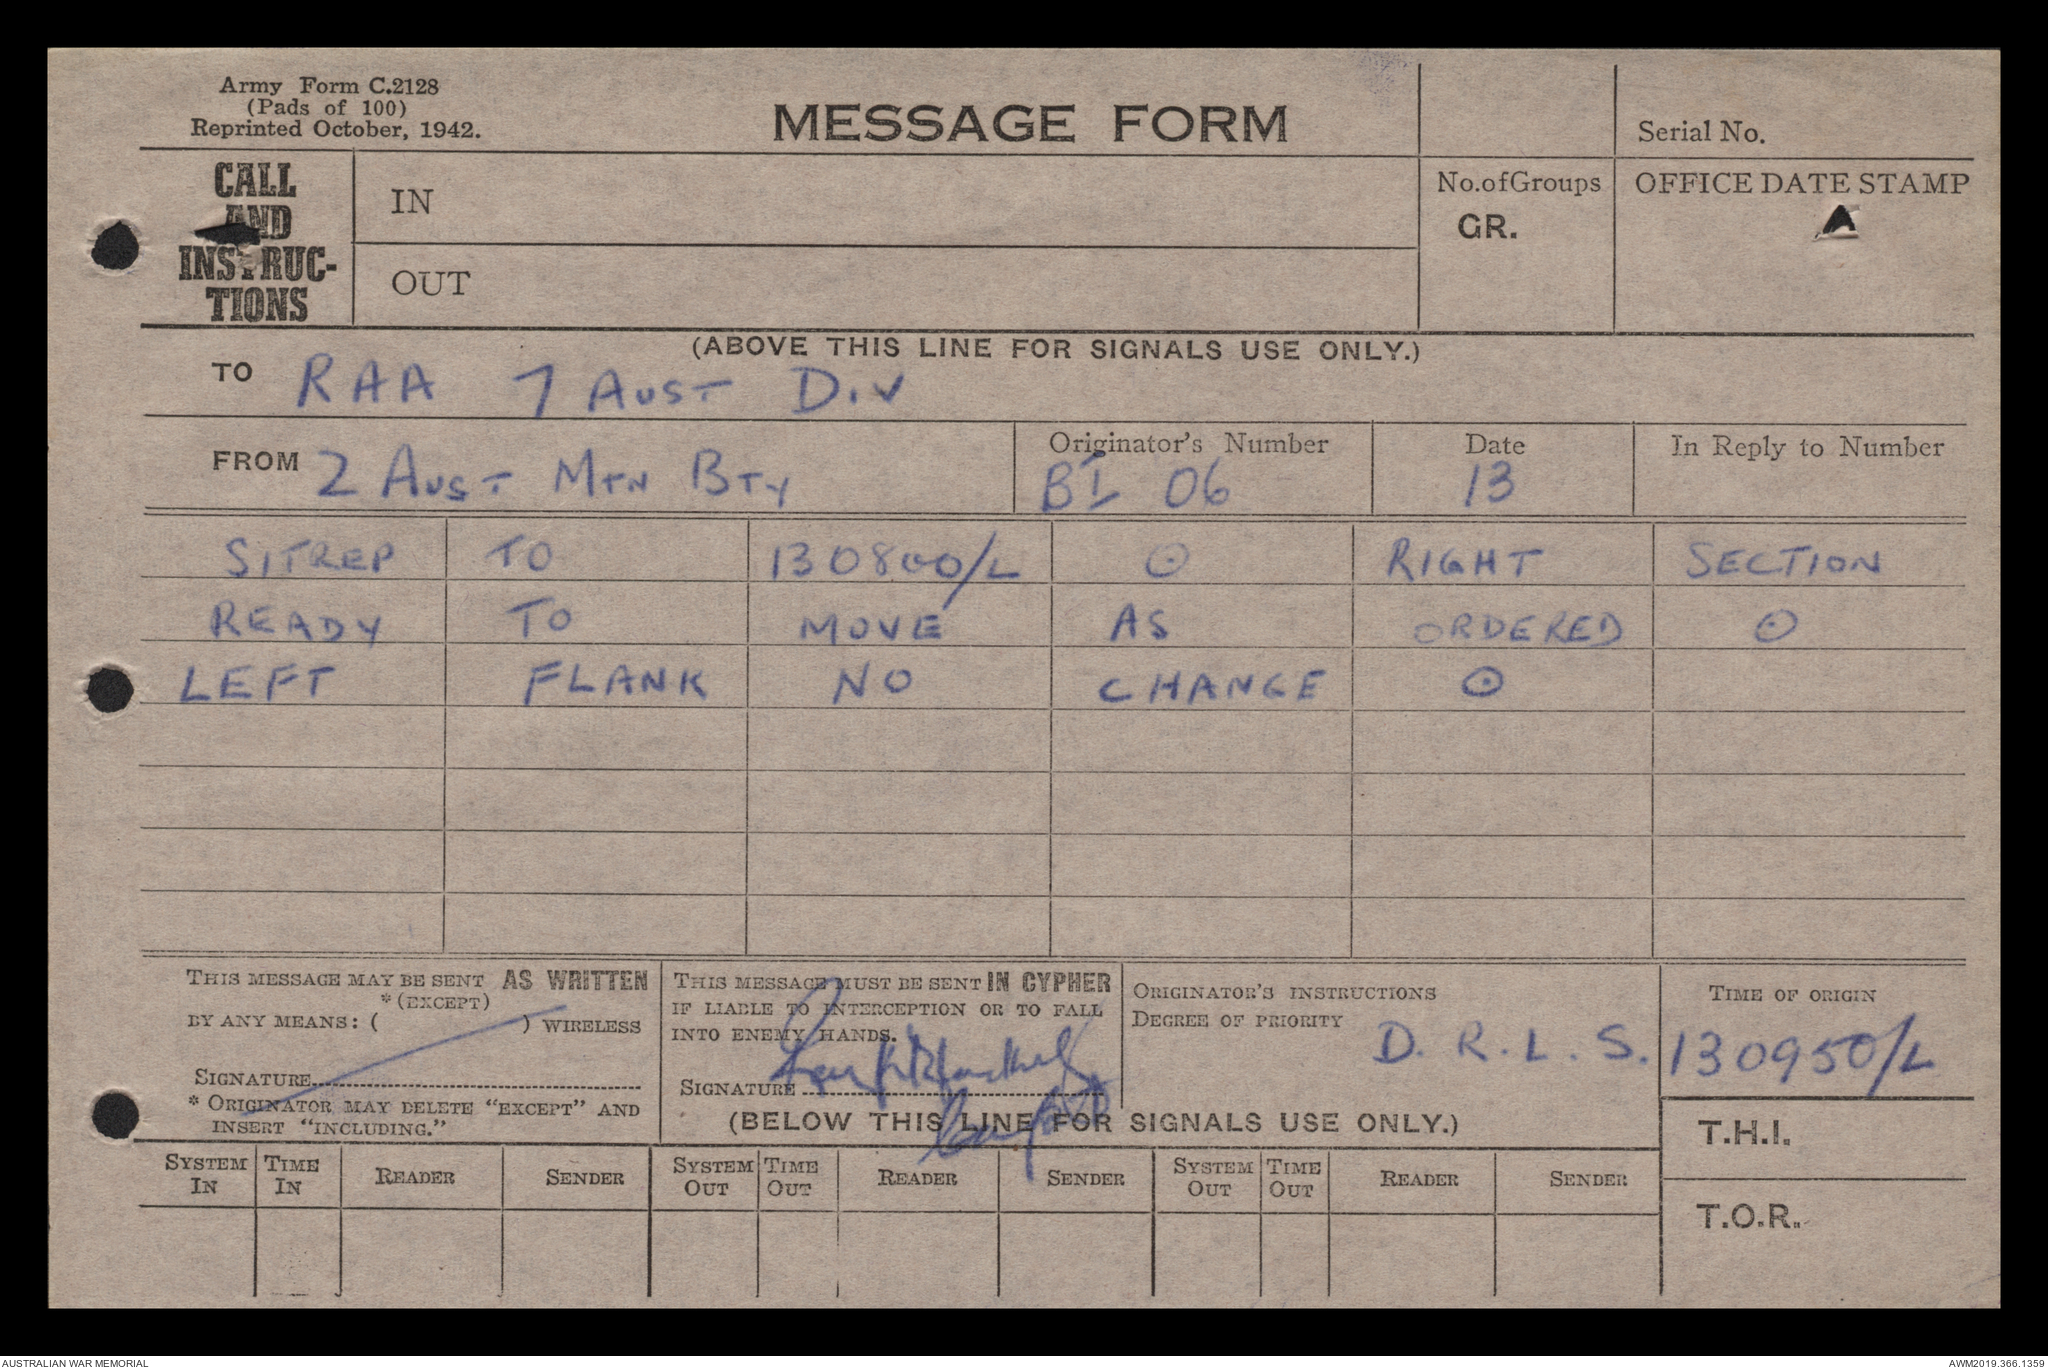 Army Form C.2128
(Pads of 100)
Reprinted October, 1942.
MESSAGE FORM
Serial No.
CALL
AND
INSTRUC-
TIONS
IN
OUT
No.ofGroups
GR.
OFFICE DATE STAMP
(ABOVE THIS LINE FOR SIGNALS USE ONLY.)
TO RAA 7 AUST DIV
FROM 2 AUST MTN BTY
Originator's Number
BI 06
Date
13
In Reply to Number
SITREP TO 130800/L ⊙ RIGHT SECTION
READY TO MOVE AS ORDERED ⊙
LEFT FLANK NO CHANGE ⊙
THIS MESSAGE MAY BE SENT AS WRITTEN
*(EXCEPT)
BY ANY MEANS: ( ) WIRELESS
SIGNATURE
* ORIGINATOR MAY DELETE "EXCEPT" AND
INSERT "INCLUDING."
THIS MESSAGE MUST BE SENT IN CYPHER
IF LIABLE TO INTERCEPTION OR TO FALL
INTO ENEMY HANDS.
SIGNATURE
ORIGINATOR'S INSTRUCTIONS
DEGREE OF PRIORITY
D.R.L.S.
TIME OF ORIGIN
130950/L
(BELOW THIS LINE FOR SIGNALS USE ONLY.)
T.H.I.
T.O.R.
SYSTEM IN TIME IN READER SENDER SYSTEM OUT TIME OUT READER SENDER SYSTEM OUT TIME OUT READER SENDER
AUSTRALIAN WAR MEMORIAL
AWM2019.366.1359